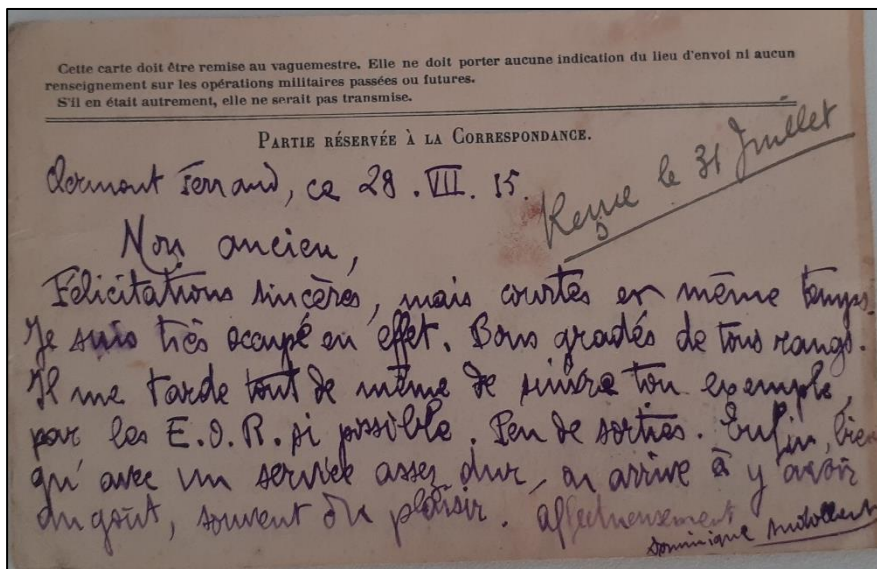 Cette carte doit être remise au vaguemestre. Elle ne doit porter aucune indication du lieu d'envoi ni aucun
renseignement sur les opérations militaires passées ou futures.
S'il en était autrement, elle ne serait pas transmise.
PARTIE RÉSERVÉE À LA CORRESPONDANCE.
Clermont Ferrand, ce 28 . VII . 15.
Reçue le 31 Juillet
Mon ancien,
Félicitations sincères, mais courtes en même temps.
Je suis très occupé en effet. Bons gradés de tous rangs.
Il me tarde tout de même de suivre ton exemple,
par les E.O.R. si possible. Peu de sorties. Enfin, bien
qu'avec un service assez dur, on arrive à y avoir
du goût, souvent du plaisir. Affectueusement
Dominique